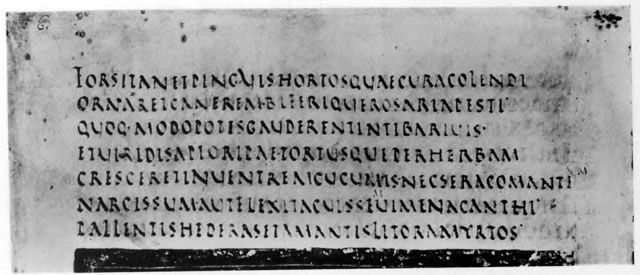 FORSITANETPINGVISHORTOSQVAECVRACOLENDI
ORNARETCANEREM·BIFERIQVEROSARIAPESTI
QVOQ·MODOPOTISGAVDERENTINTIBARIVIS·
ETVIRIDISAPIORIPAETORTVSQVEPERHERBAM
CRESCERETINVENTREMCVCVMIS·NECSERACOMANTEM
NARCISSVMAVTFLEXITACVISSEVIMENACANTHI
PALLENTISHEDERASETAMANTISLITORAMYRTOS